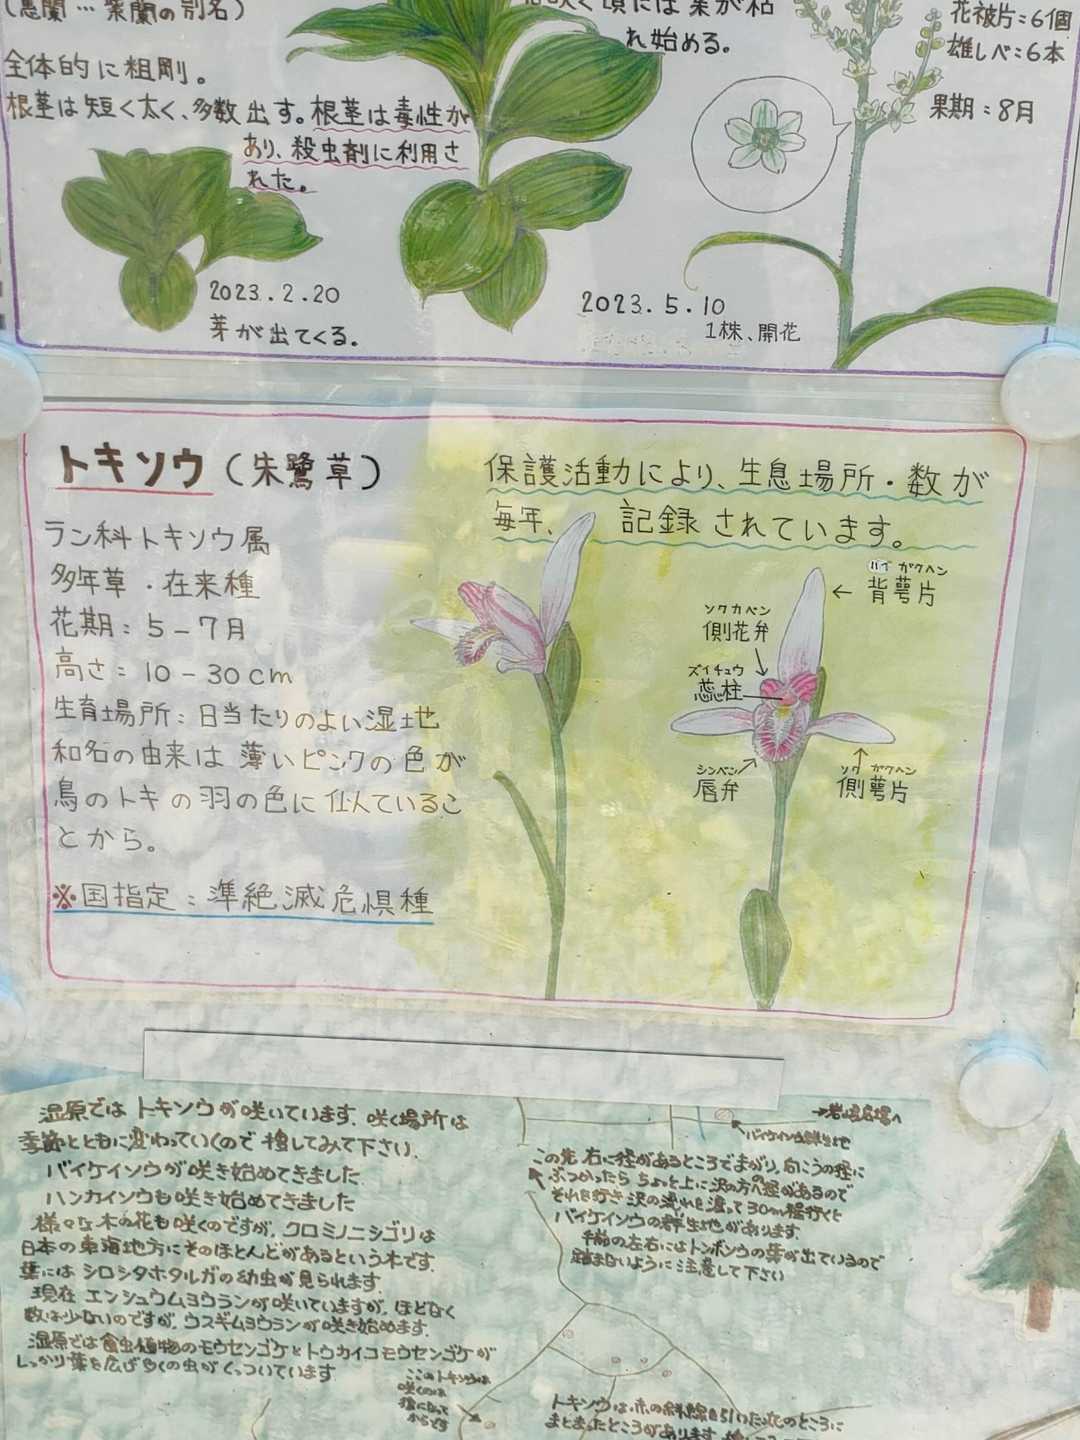 (蕙蘭…紫蘭の別名)
全体的に粗剛。
根茎は短く太く、多数出す。根茎は毒性が
あり、殺虫剤に利用さ
れた。
咲く頃には葉が枯
れ始める。
花被片:6個
雄しべ:6本
果期:8月
2023.2.20
芽が出てくる。
2023.5.10
1株、開花
トキソウ(朱鷺草)
ラン科トキソウ属
多年草・在来種
花期:5-7月
高さ:10-30cm
生育場所:日当たりのよい湿地
和名の由来は薄いピンクの色が
鳥のトキの羽の色に似ているこ
とから。
※国指定:準絶滅危惧種
保護活動により、生息場所・数が
毎年、記録されています。
ハイガクヘン
←背萼片
ソクカベン
側花弁
ズイチュウ
蕊柱
シンベン
唇弁
ソクガクヘン
側萼片
湿原ではトキソウが咲いています。咲く場所は
季節とともに変わっていくので捜してみて下さい。
バイケイソウが咲き始めてきました
ハンカイソウも咲き始めてきました
様々な木の花も咲くのですが、クロミノニシゴリは
日本の東海地方にそのほとんどがあるという木です。
葉にはシロシタホタルガの幼虫が見られます。
現在エンシュウムヨウランが咲いていますが、ほどなく
数は少ないのですが、ウスギムヨウランが咲き始めます。
湿原では食虫植物のモウセンゴケとトウカイコモウセンゴケが
しっかり葉を広げ多くの虫がくっついています
ここのトキソウは
咲くのは
からです
バイケイソウ群生地
この先右に径があるところでまがり、向こうの径に
ぶつかったらちょっと上に沢の方へ径があるので
それを行き沢の流れを渡って30m程行くと
バイケイソウの群生地があります。
手前の左右にはトンボソウの葉が出ているので
踏まないように注意して下さい
トキソウは赤の斜線を引いた丸のところに
まとまったところがあります。